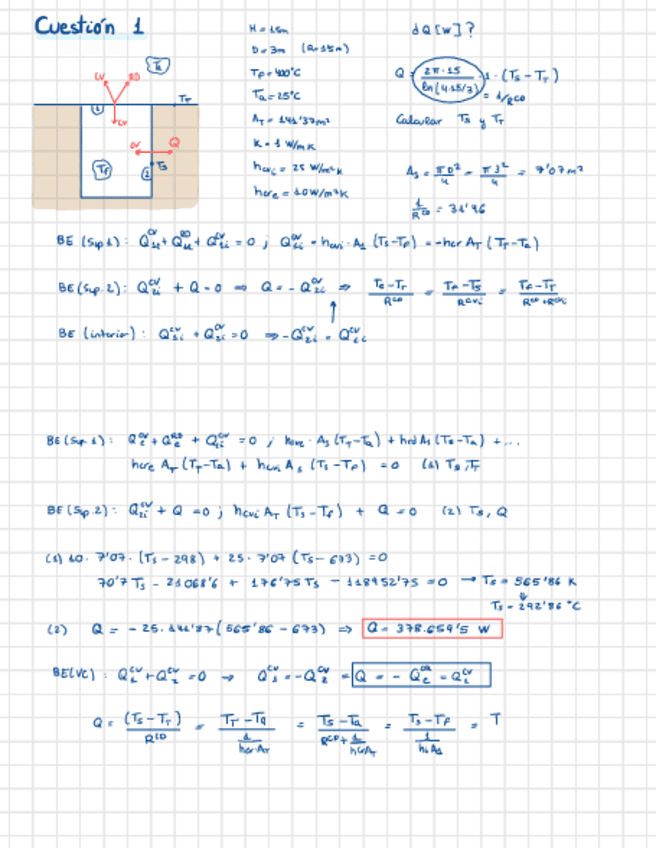 Cuestión 1
H = 15m
D = 3m
Tf = 400°C
Ta = 25°C
AT = 141'37m²
K = 1 W/mK
hcvi = 25 W/m²K
hcre = 10W/m²K
¿Q [W]?
Q = 2π·15 / ln(4·15/3) · 1 · (Ts - TT)
= 1/RCD
Calcular Ts y TT
As = πD²/4 = π3²/4 = 7'07m²
1/RCD = 31'46
Ta
CV RD TT
1
CV
CV Q
Tf 2 Ts
BE (Sup.1): Q1e^CV + Q1e^RD + Q1i^CV = 0 ; Q1i^CV = hcvi · A1 (Ts-Tf) = -hcr AT (TT-Ta)
BE (Sup.2): Q2i^CV + Q = 0 ⇒ Q = -Q2i^CV ⇒ Ts-TT / RCD = Tf-Ts / RCVi = Tf-TT / RCD+RCVi
BE (interior): Q1i^CV + Q2i^CV = 0 ⇒ -Q2i^CV = Q1i^CV
BE (Sup.1): Qe^CV + Qe^RD + Q1i^CV = 0 ; hcve · As (TT-Ta) + hrd As (Ts-Ta) + ...
hcre AT (TT-Ta) + hcvi As (Ts-Tf) = 0 (1) Ts, TT
BE (Sup.2): Q2i^CV + Q = 0 ; hcvi AT (Ts-Tf) + Q = 0 (2) Ts, Q
(1) 10 · 7'07 · (Ts - 298) + 25 · 7'07 (Ts - 673) = 0
70'7 Ts - 21068'6 + 176'75 Ts - 118952'75 = 0 → Ts = 565'86 K
Ts = 292'86 °C
(2) Q = -25 · 141'37 (565'86 - 673) ⇒ Q = 378.659'5 W
BE (VC): Q1^CV + Q2^CV = 0 → Q1^CV = -Q2^CV = Q = -Q2^CV = Q1^CV
Q = (Ts-TT) / RCD = TT-Ta / 1/hcr·AT = Ts-Ta / RCD + 1/hcrAT = Ts-Tf / 1/hiAs = T